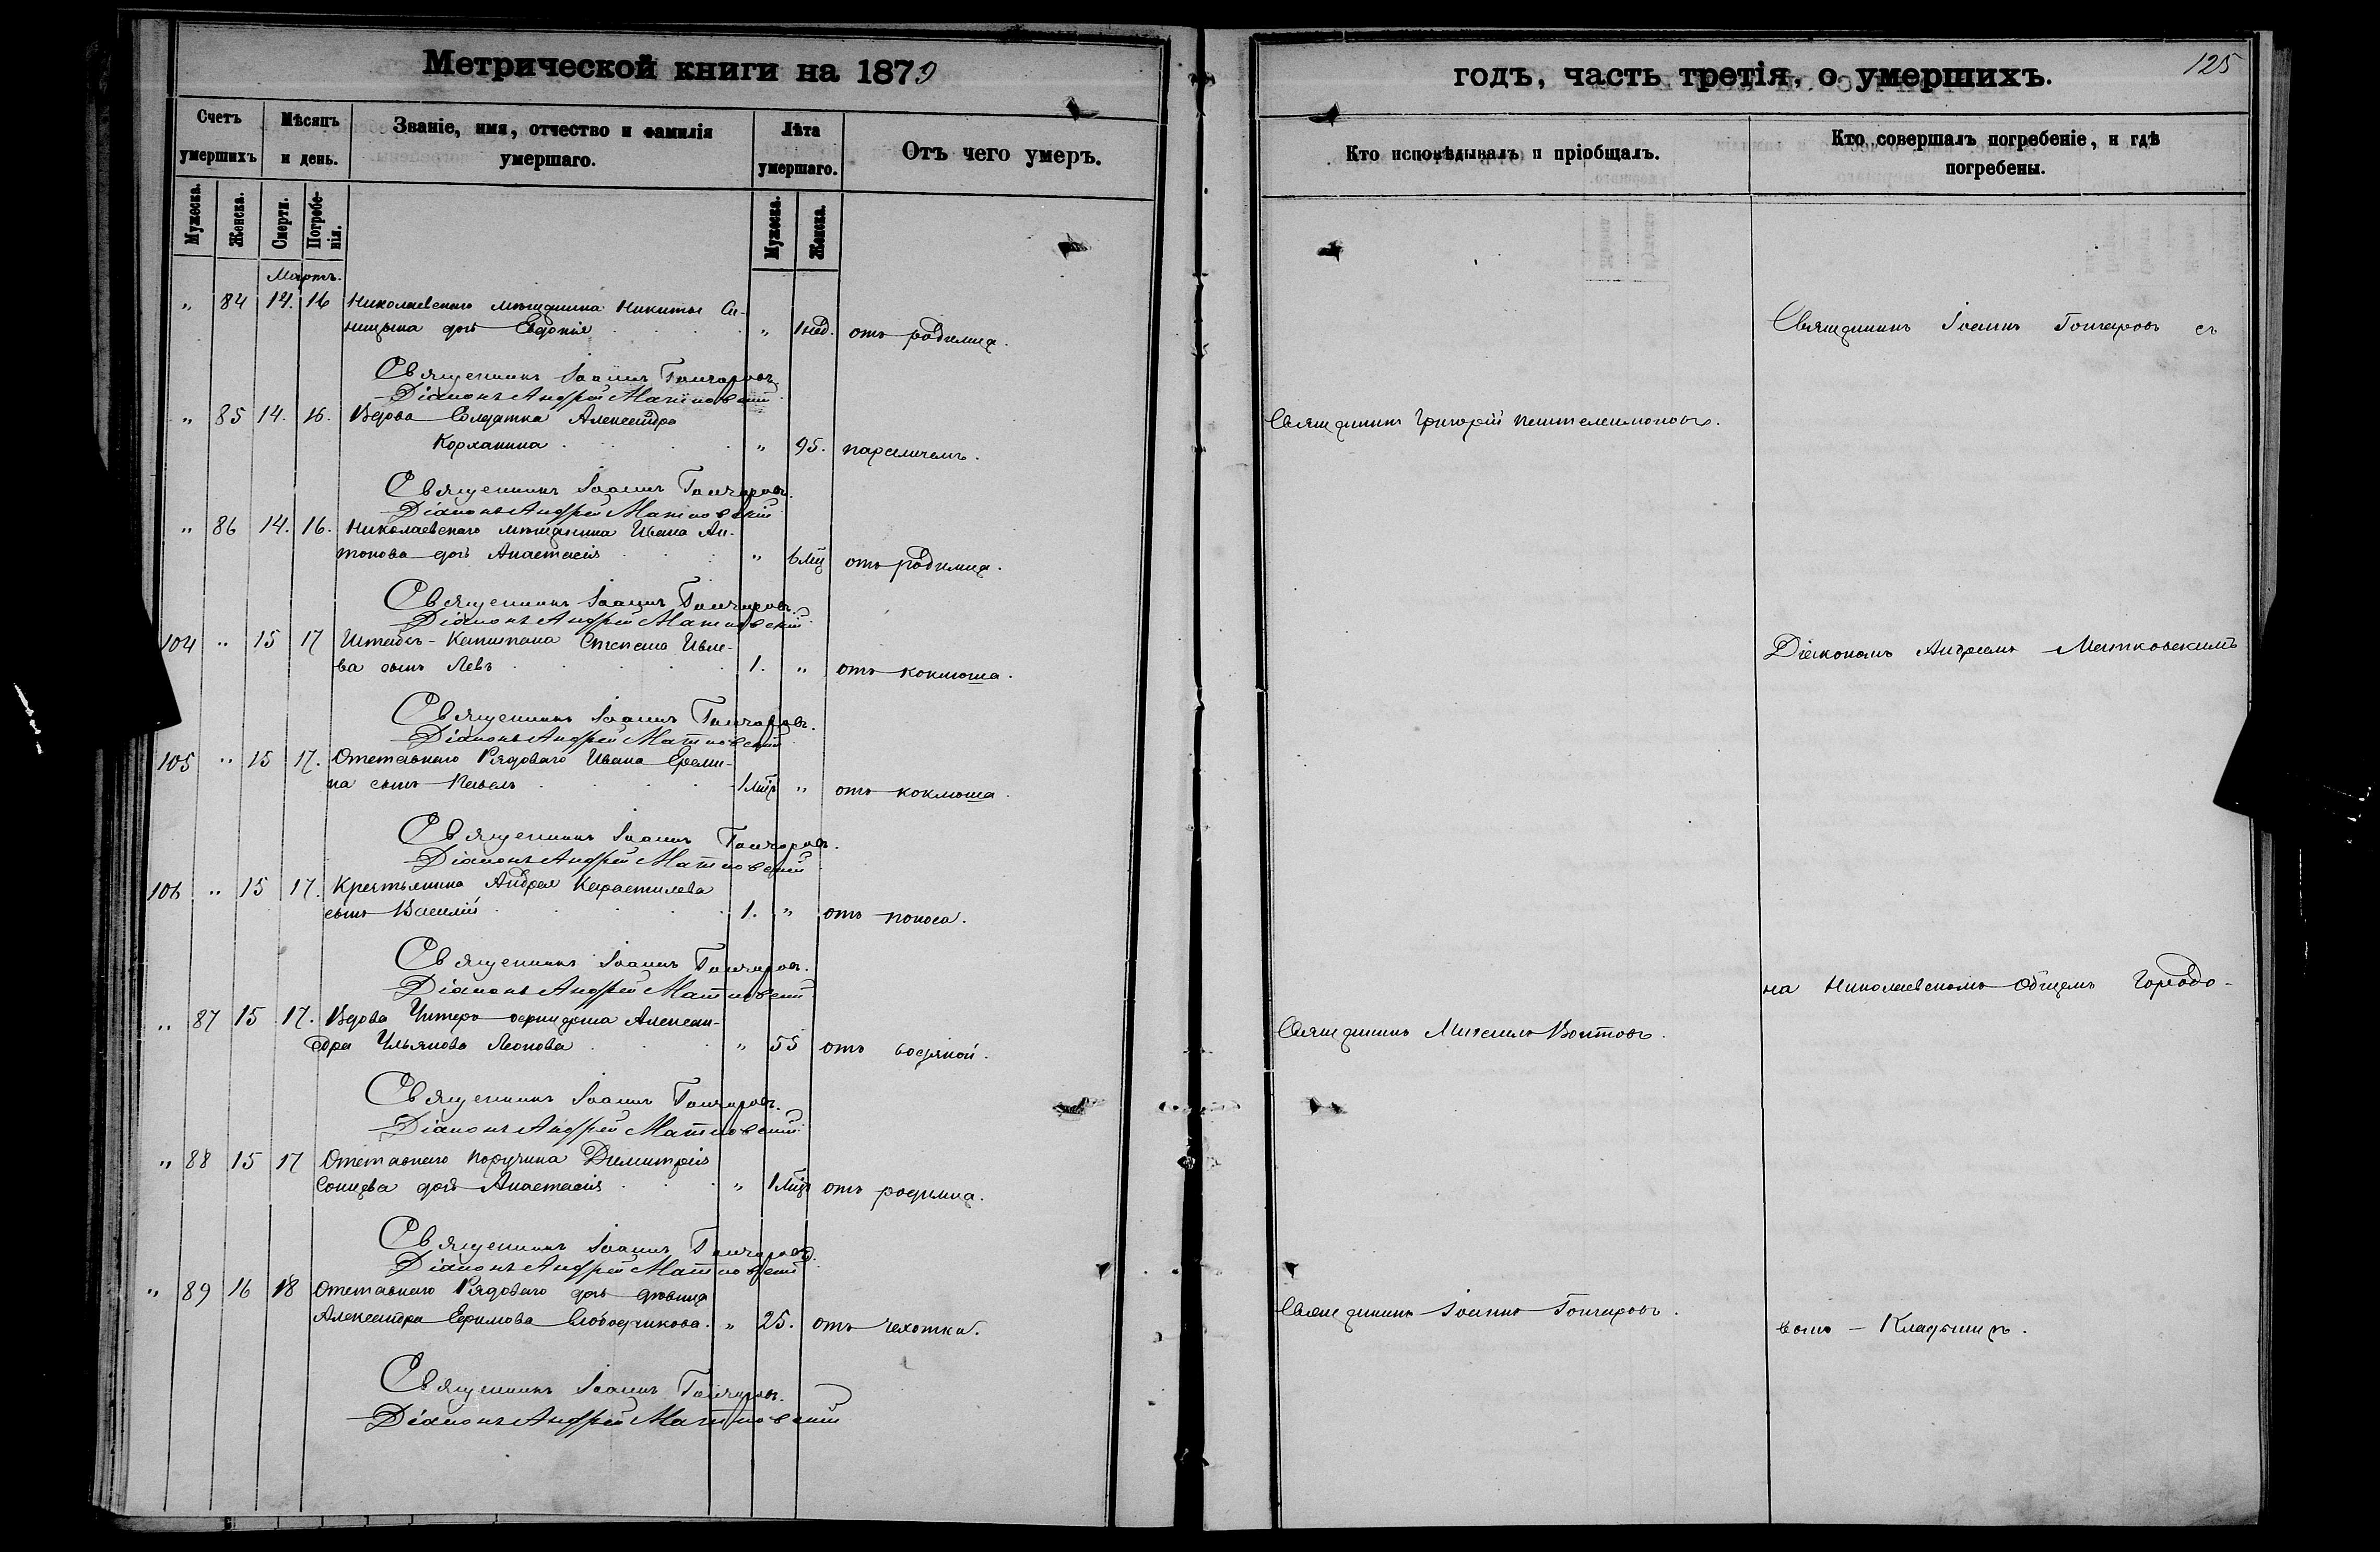 Метрической книги на 1879
годъ, часть третія, о умершихъ.
125
Счетъ умершихъ
Мѣсяцъ и день.
Званіе, имя, отчество и фамилія умершаго.
Лѣта умершаго.
Отъ чего умеръ.
Кто исповѣдывалъ и пріобщалъ.
Кто совершалъ погребеніе, и гдѣ погребены.
Мужеска.
Женска.
Смерти.
Погребенія.
Мужеска.
Женска.
Мартъ.
" 84 14. 16 Николаевскаго мѣщанина Никиты Си-
ницына дочь Евдокія " 1 нед. отъ родимца.
Священникъ Іоаннъ Гончаровъ съ
Священникъ Іоаннъ Гончаровъ.
Діаконъ Андрей Матковскій
" 85 14. 16. Вдова Солдатка Александра
Корханина " 95. параличемъ.
Священникъ Григорій Пантелеимоновъ.
Священникъ Іоаннъ Гончаровъ.
Діаконъ Андрей Матковскій
" 86 14. 16. Николаевскаго мѣщанина Ивана Ан-
тонова дочь Анастасія " 6 мц отъ родимца.
Священникъ Іоаннъ Гончаровъ.
Діаконъ Андрей Матковскій
104 " 15 17 Штабсъ-Капитана Степана
сынъ Левъ 1. " отъ коклюша.
Діакономъ Андреемъ Матковскимъ
Священникъ Іоаннъ Гончаровъ.
Діаконъ Андрей Матковскій
105 " 15 17. Отставнаго Рядоваго Ивана Ереми-
на сынъ Павелъ 1 мцъ " отъ коклюша.
Священникъ Іоаннъ Гончаровъ.
Діаконъ Андрей Матковскій
106 " 15 17. Крестьянина Андрея
сынъ Василій 1. " отъ поноса.
Священникъ Іоаннъ Гончаровъ.
Діаконъ Андрей Матковскій
на Николаевскомъ Общемъ Городо-
" 87 15 17. Вдова Унтеръ офицерша Алексан-
дра Ульянова Леонова " 55 отъ водяной.
Священникъ Михаилъ Воитовъ.
Священникъ Іоаннъ Гончаровъ.
Діаконъ Андрей Матковскій
" 88 15 17 Отставнаго поручика Димитрія
дочь Анастасія " 1 мцъ отъ родимца.
Священникъ Іоаннъ Гончаровъ.
Діаконъ Андрей Матковскій
" 89 16 18 Отставнаго Рядоваго дочь дѣвица
Александра Ефимова Слободчикова. " 25. отъ чахотки.
Священникъ Іоаннъ Гончаровъ.
вомъ - Кладбищѣ.
Священникъ Іоаннъ Гончаровъ.
Діаконъ Андрей Матковскій